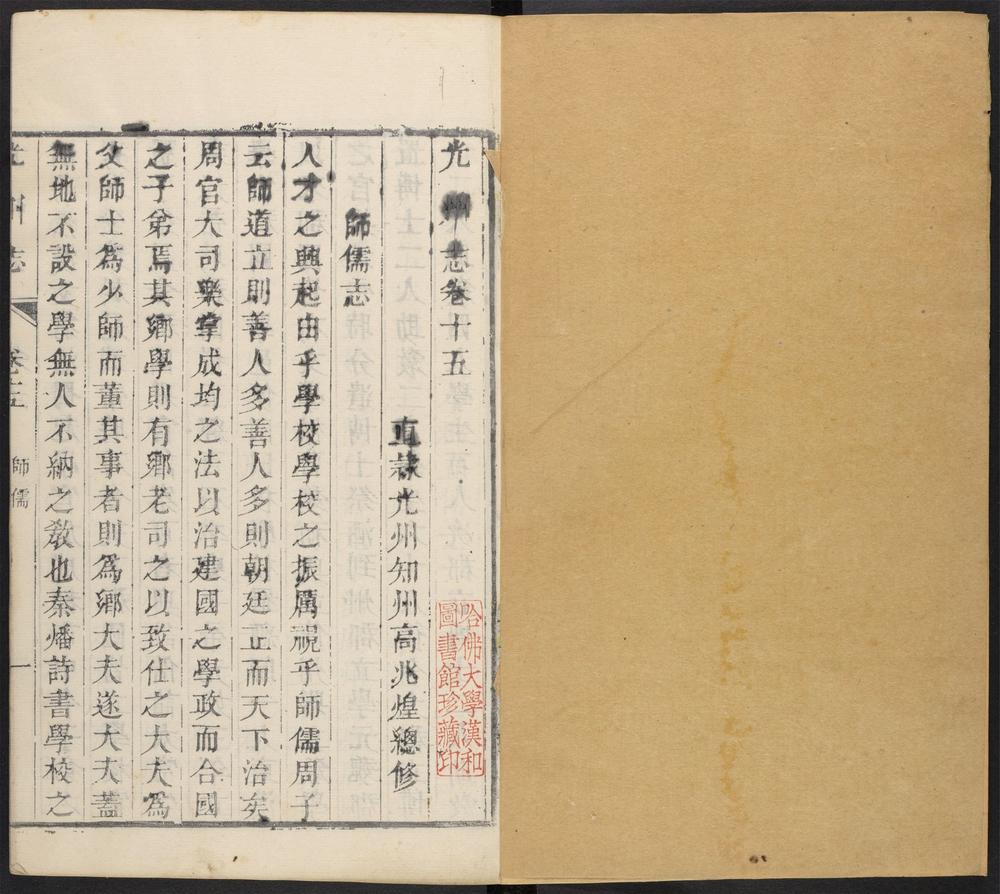 光州志卷十五
直隸光州知州高兆煌總修
師儒志
人才之興起由乎學校學校之振厲視乎師儒周子
云師道立則善人多善人多則朝廷正而天下治矣
周官大司樂掌成均之法以治建國之學政而合國
之子弟焉其鄉學則有鄉老司之以致仕之大夫為
父師士爲少師而董其事者則爲鄉大夫遂大夫蓋
無地不設之學無人不納之敎也秦燔詩書學校之
光州志
卷十五
師儒
一
哈佛大學漢和
圖書館珍藏印